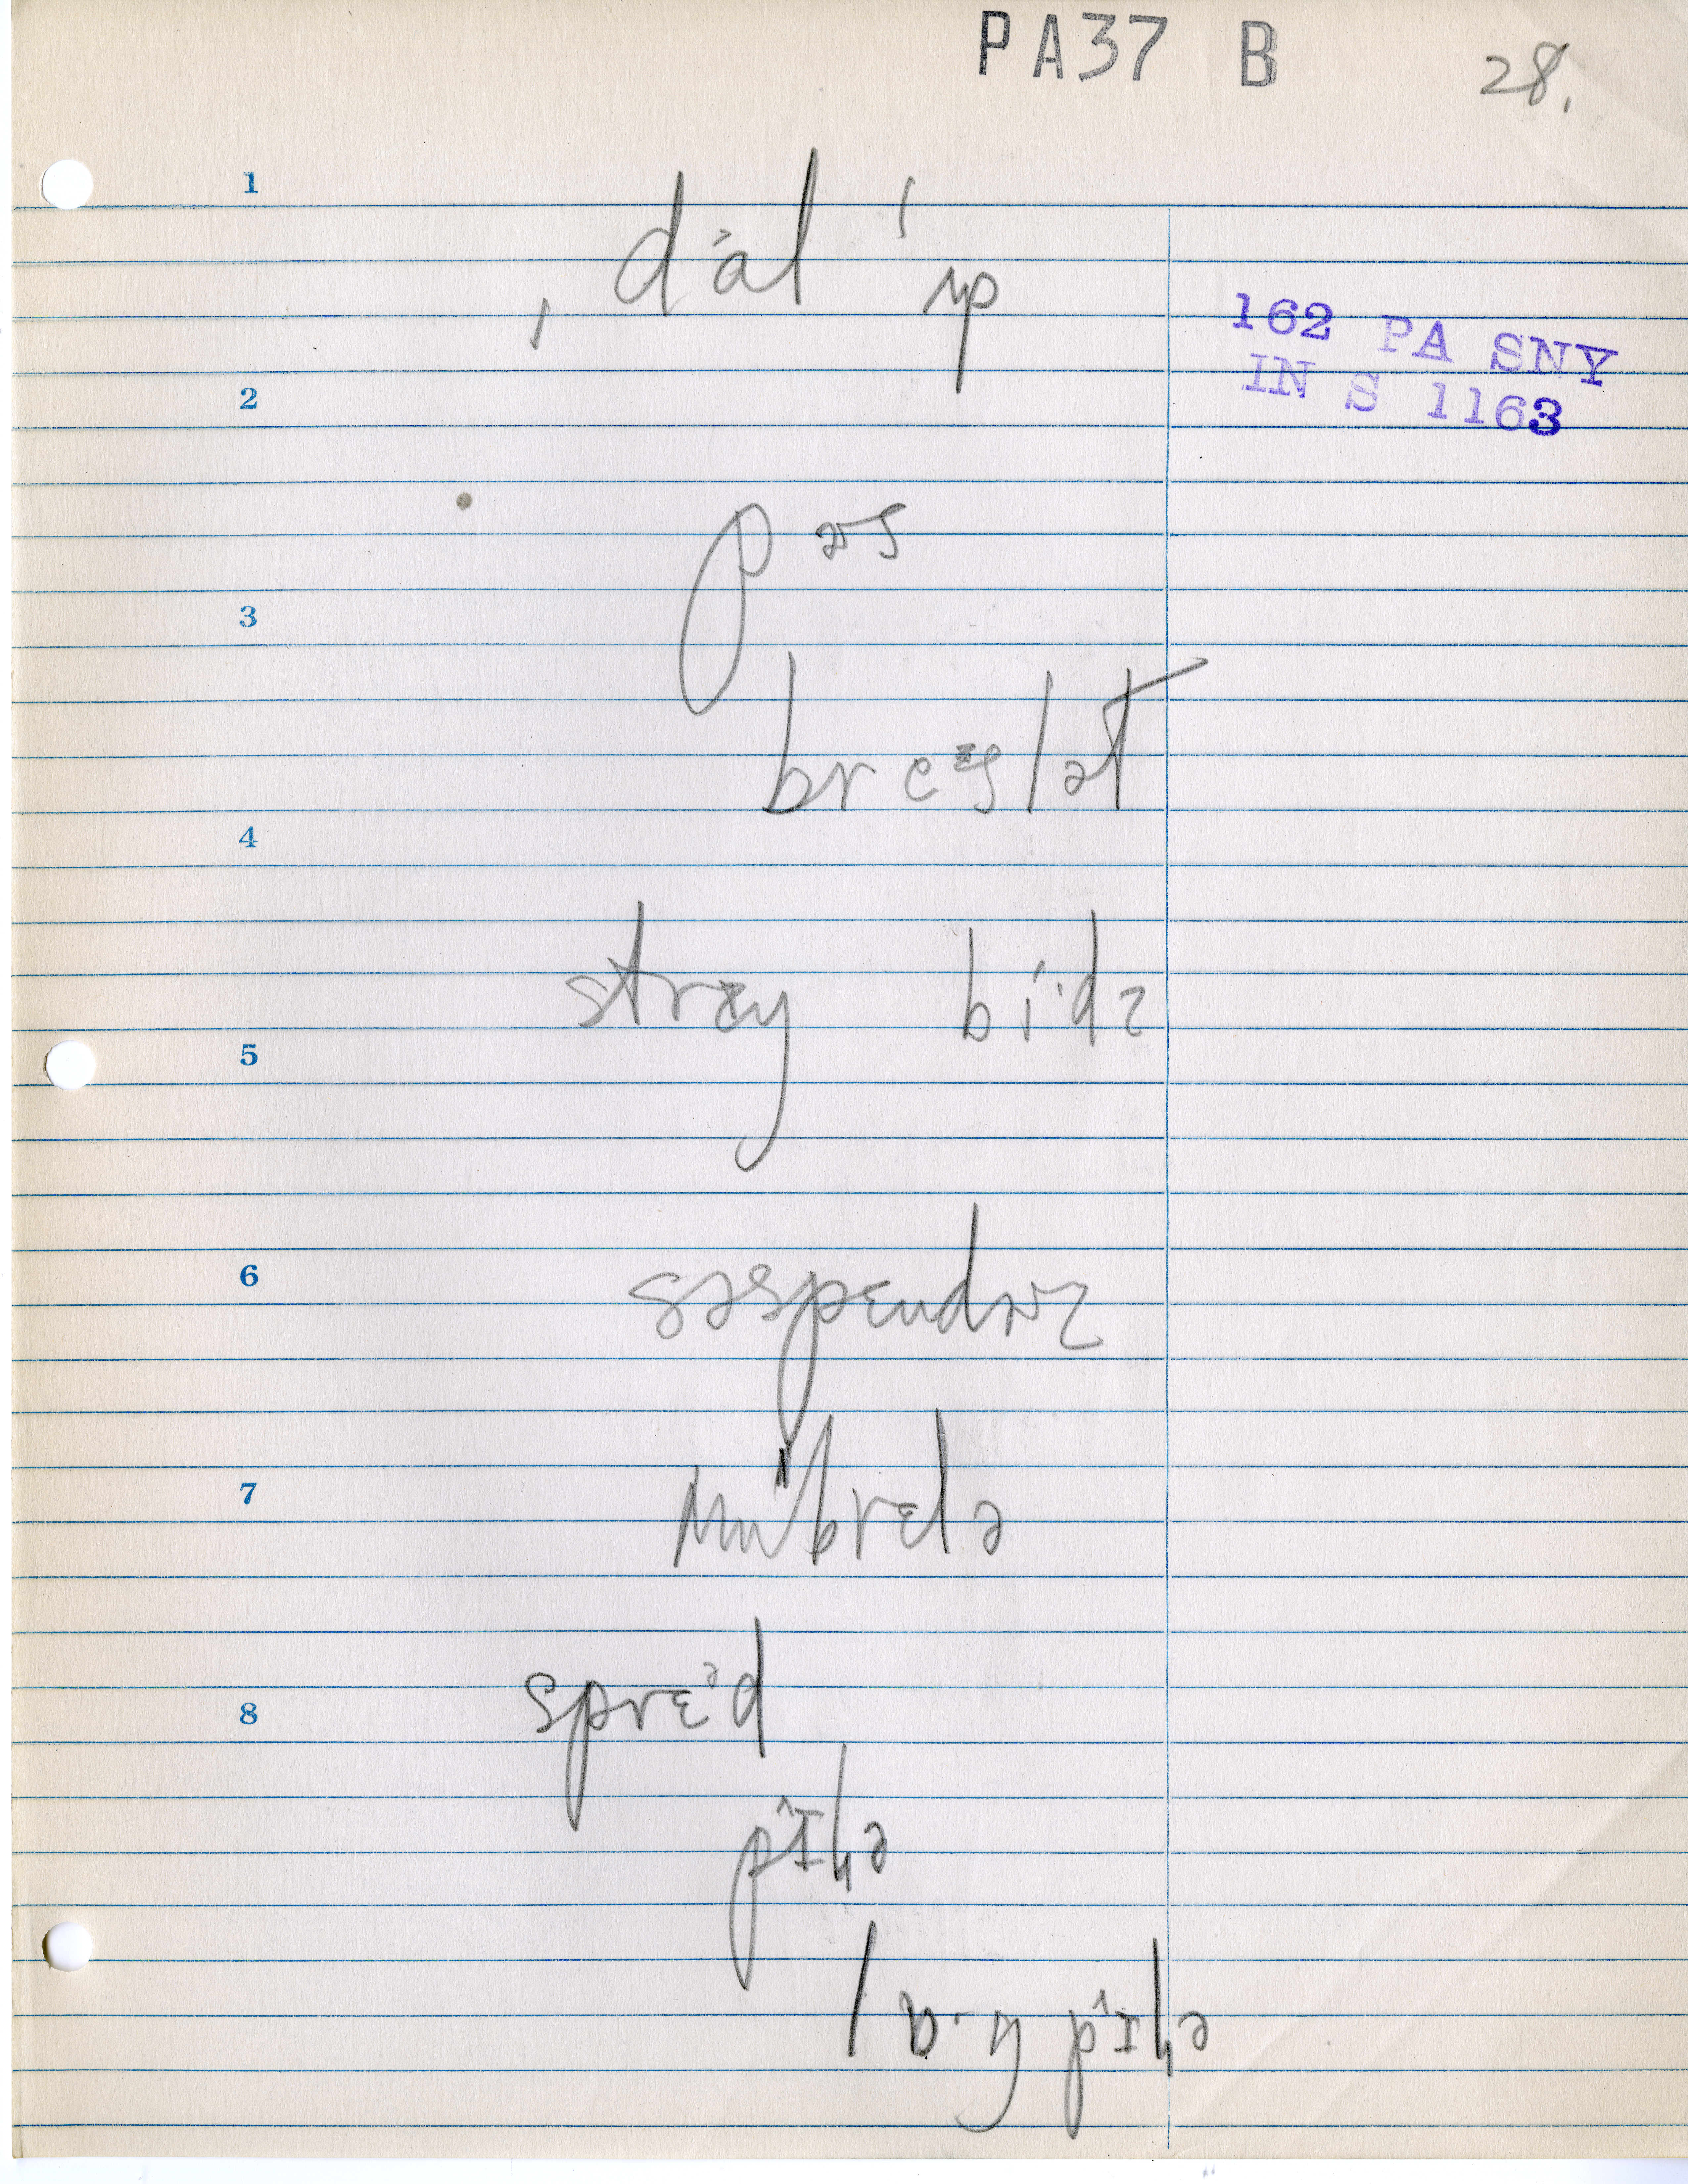 PA37 B 28.
1
ˌdᵊal ˈʌp
162 PA SNY
IN S 1163
2
pɚs
3
breᶻslət
4
stræŋ bi·dz
5
6
səspɛndɚz
7
ʌmbrɛlə
sprɛᵊd
8
pɪlə
lɒ·ŋ pɪlə